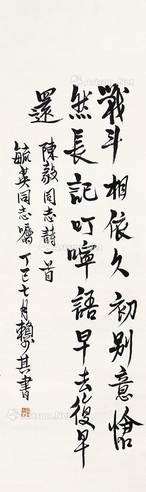 戰斗相依久初別意愴
然長記叮嚀語早去復早
還
陳毅同志詩一首
毓英同志囑 丁巳七月賴少其書